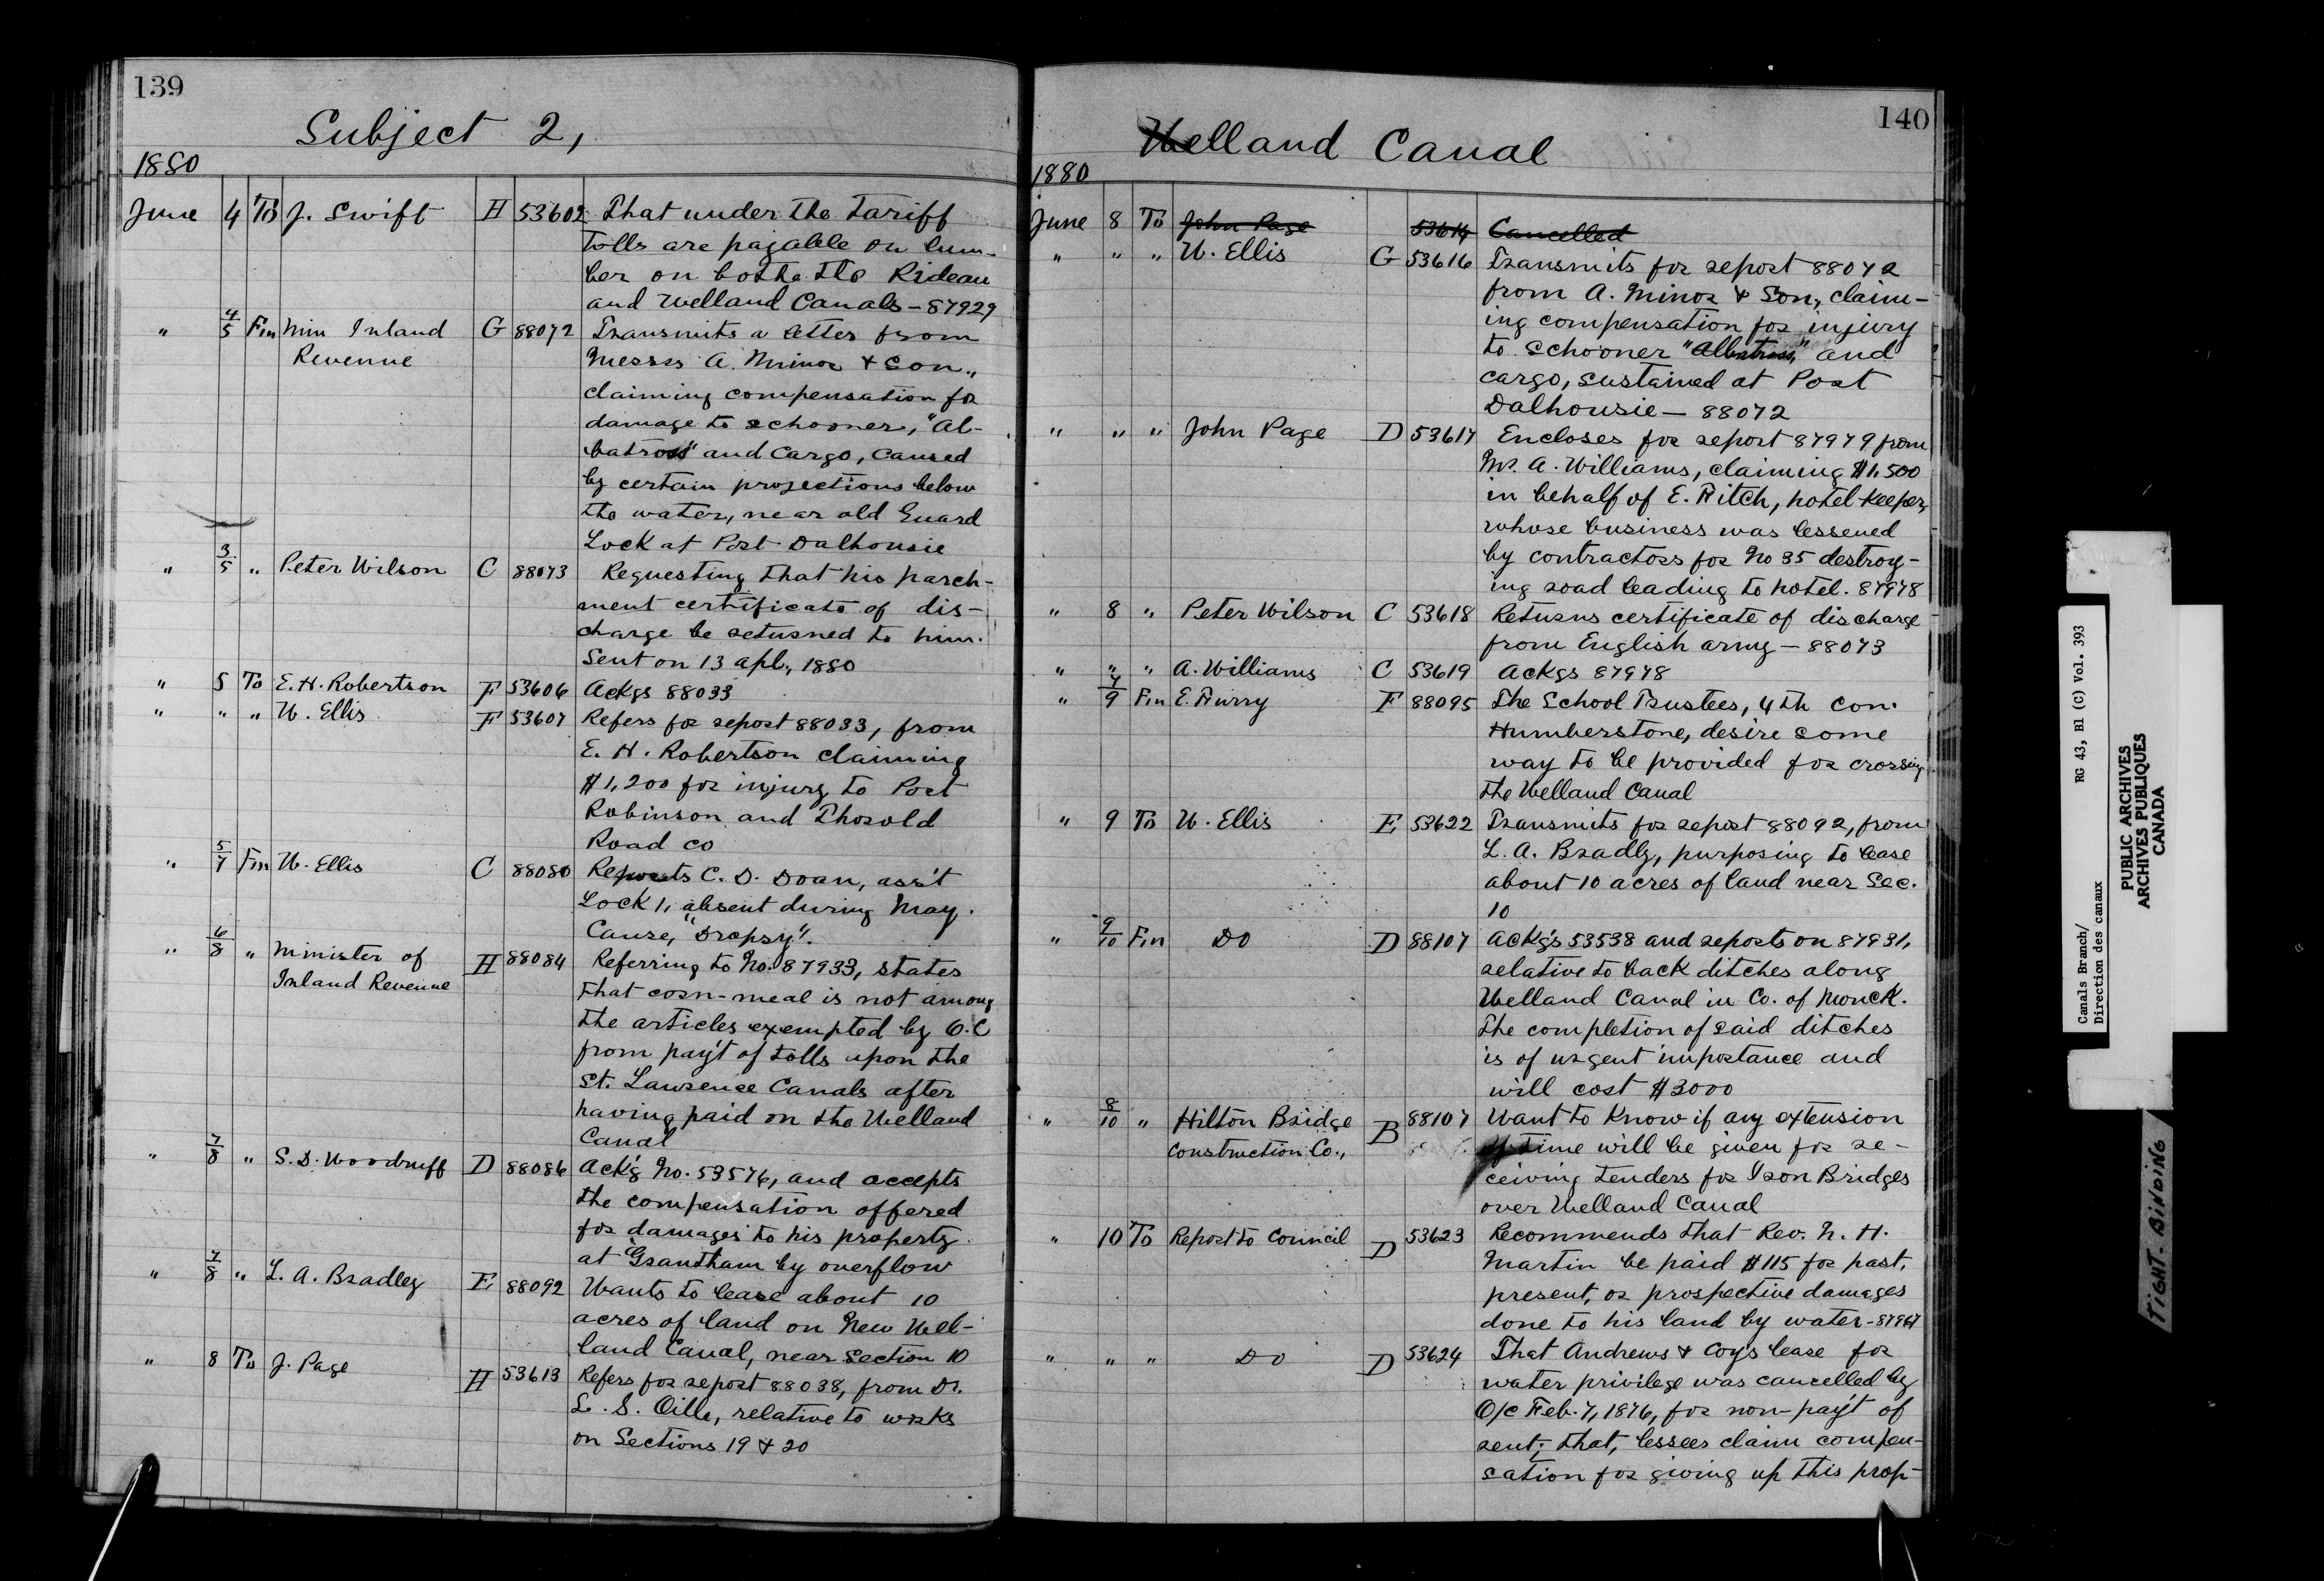 139
Subject 2,
1880
June 4 To J. Swift H 53602 That under the tariff
tolls are payable on lum-
ber on bothe the Rideau
and Welland Canals - 87929
" 4/5 Fm Min Inland G 88072 Transmits a letter from
Revenue Messrs A. Minor & Son.,
claiming compensation for
damage to schooner, "Al-
batross" and Cargo, caused
by certain projections below
the water, near old Guard
Lock at Port Dalhousie
" 3/5 " Peter Wilson C 88073 Requesting that his parch-
ment certificate of dis-
charge be returned to him.
Sent on 13 apl., 1880
" 5 To E. H. Robertson F 53606 Ackgs 88033
" " " W. Ellis F 53607 Refers for report 88033, from
E. H. Robertson claiming
$1,200 for injury to Port
Robinson and Thorold
Road co
" 5/7 Fm W. Ellis C 88080 Reports C. D. Doan, ass't
Lock 1, absent during May.
Cause, "Dropsy".
" 6/8 " Minister of H 88084 Referring to No. 87933, states
Inland Revenue that corn-meal is not among
the articles exempted by O.C
from pay't of tolls upon the
St. Lawrence Canals after
having paid on the Welland
Canal
" 7/8 " S. D. Woodruff D 88086 Ack'g No. 53576, and accepts
the compensation offered
for damages to his property
at Grantham by overflow
" 7/8 " L. A. Bradley E 88092 Wants to lease about 10
acres of land on New Wel-
land Canal, near Section 10
" 8 To J. Page H 53613 Refers for report 88038, from Dr.
L. S. Oille, relative to works
on Sections 19 & 20
140
Welland Canal
1880
June 8 To John Page 53614 Cancelled
" " " W. Ellis G 53616 Transmits for report 88072
from A. Minor & Son, claim-
ing compensation for injury
to schooner "Albatross," and
cargo, sustained at Port
Dalhousie - 88072
" " " John Page D 53617 Encloses for report 87979 from
Mr. A. Williams, claiming $1,500
in behalf of E. Fitch, hotel-keeper,
whose business was lessened
by contractors for No 35 destroy-
ing road leading to hotel. 87978
" 8 " Peter Wilson C 53618 Returns certificate of discharge
from English army - 88073
" " " A. Williams C 53619 Ackgs 87978
" 7/9 Fm E. Furry F 88095 The School Trustees, 4th Con.
Humberstone, desire some
way to be provided for crossing
the Welland Canal
" 9 To W. Ellis E 53622 Transmits for report 88092, from
L. A. Bradly, purposing to lease
about 10 acres of land near Sec.
10
" 9/10 Fm Do D 88107 Ackg's 53538 and reports on 87931,
relative to back ditches along
Welland Canal in Co. of Monck.
The completion of said ditches
is of urgent importance and
will cost $3000
" 8/10 " Hilton Bridge B 88107 Want to know if any extension
Construction Co., of time will be given for re-
ceiving tenders for Iron Bridges
over Welland Canal
" 10 To Report to Council D 53623 Recommends that Rev. N. H.
Martin be paid $115 for past,
present, or prospective damages
done to his land by water - 87967
" " " Do D 53624 That Andrews & Coy's lease for
water privilege was cancelled by
O/C Feb. 7, 1876, for non-pay't of
rent; that, lessees claim compen-
sation for giving up this prop-
Canals Branch/ RG 43, B1 (C) Vol. 393
Direction des canaux
PUBLIC ARCHIVES
ARCHIVES PUBLIQUES
CANADA
TIGHT BINDING